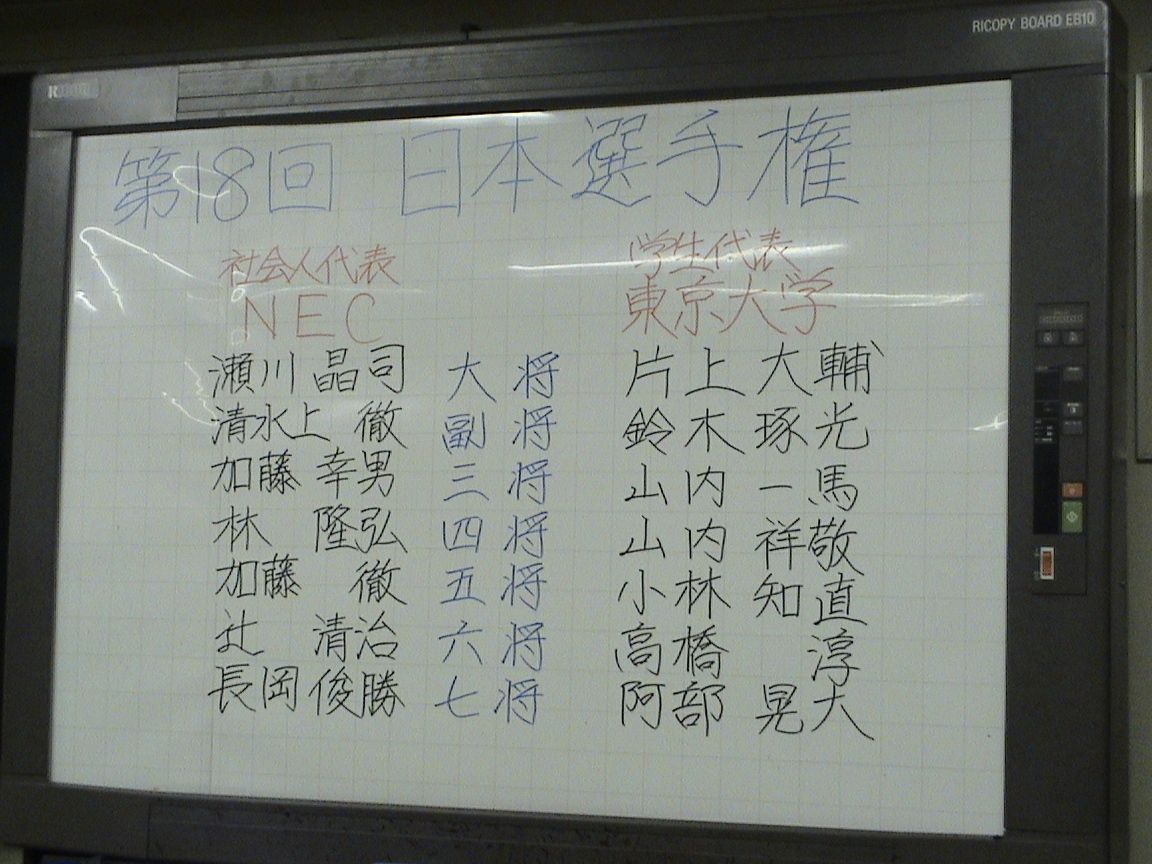 RICOPY BOARD EB10
第18回 日本選手権
社会人代表 学生代表
NEC 東京大学
瀬川 晶司 大将 片上 大輔
清水上 徹 副将 鈴木 琢光
加藤 幸男 三将 山内 一馬
林 隆弘 四将 山内 祥敬
加藤 徹 五将 小林 知直
辻 清治 六将 高橋 淳
長岡 俊勝 七将 阿部 晃大